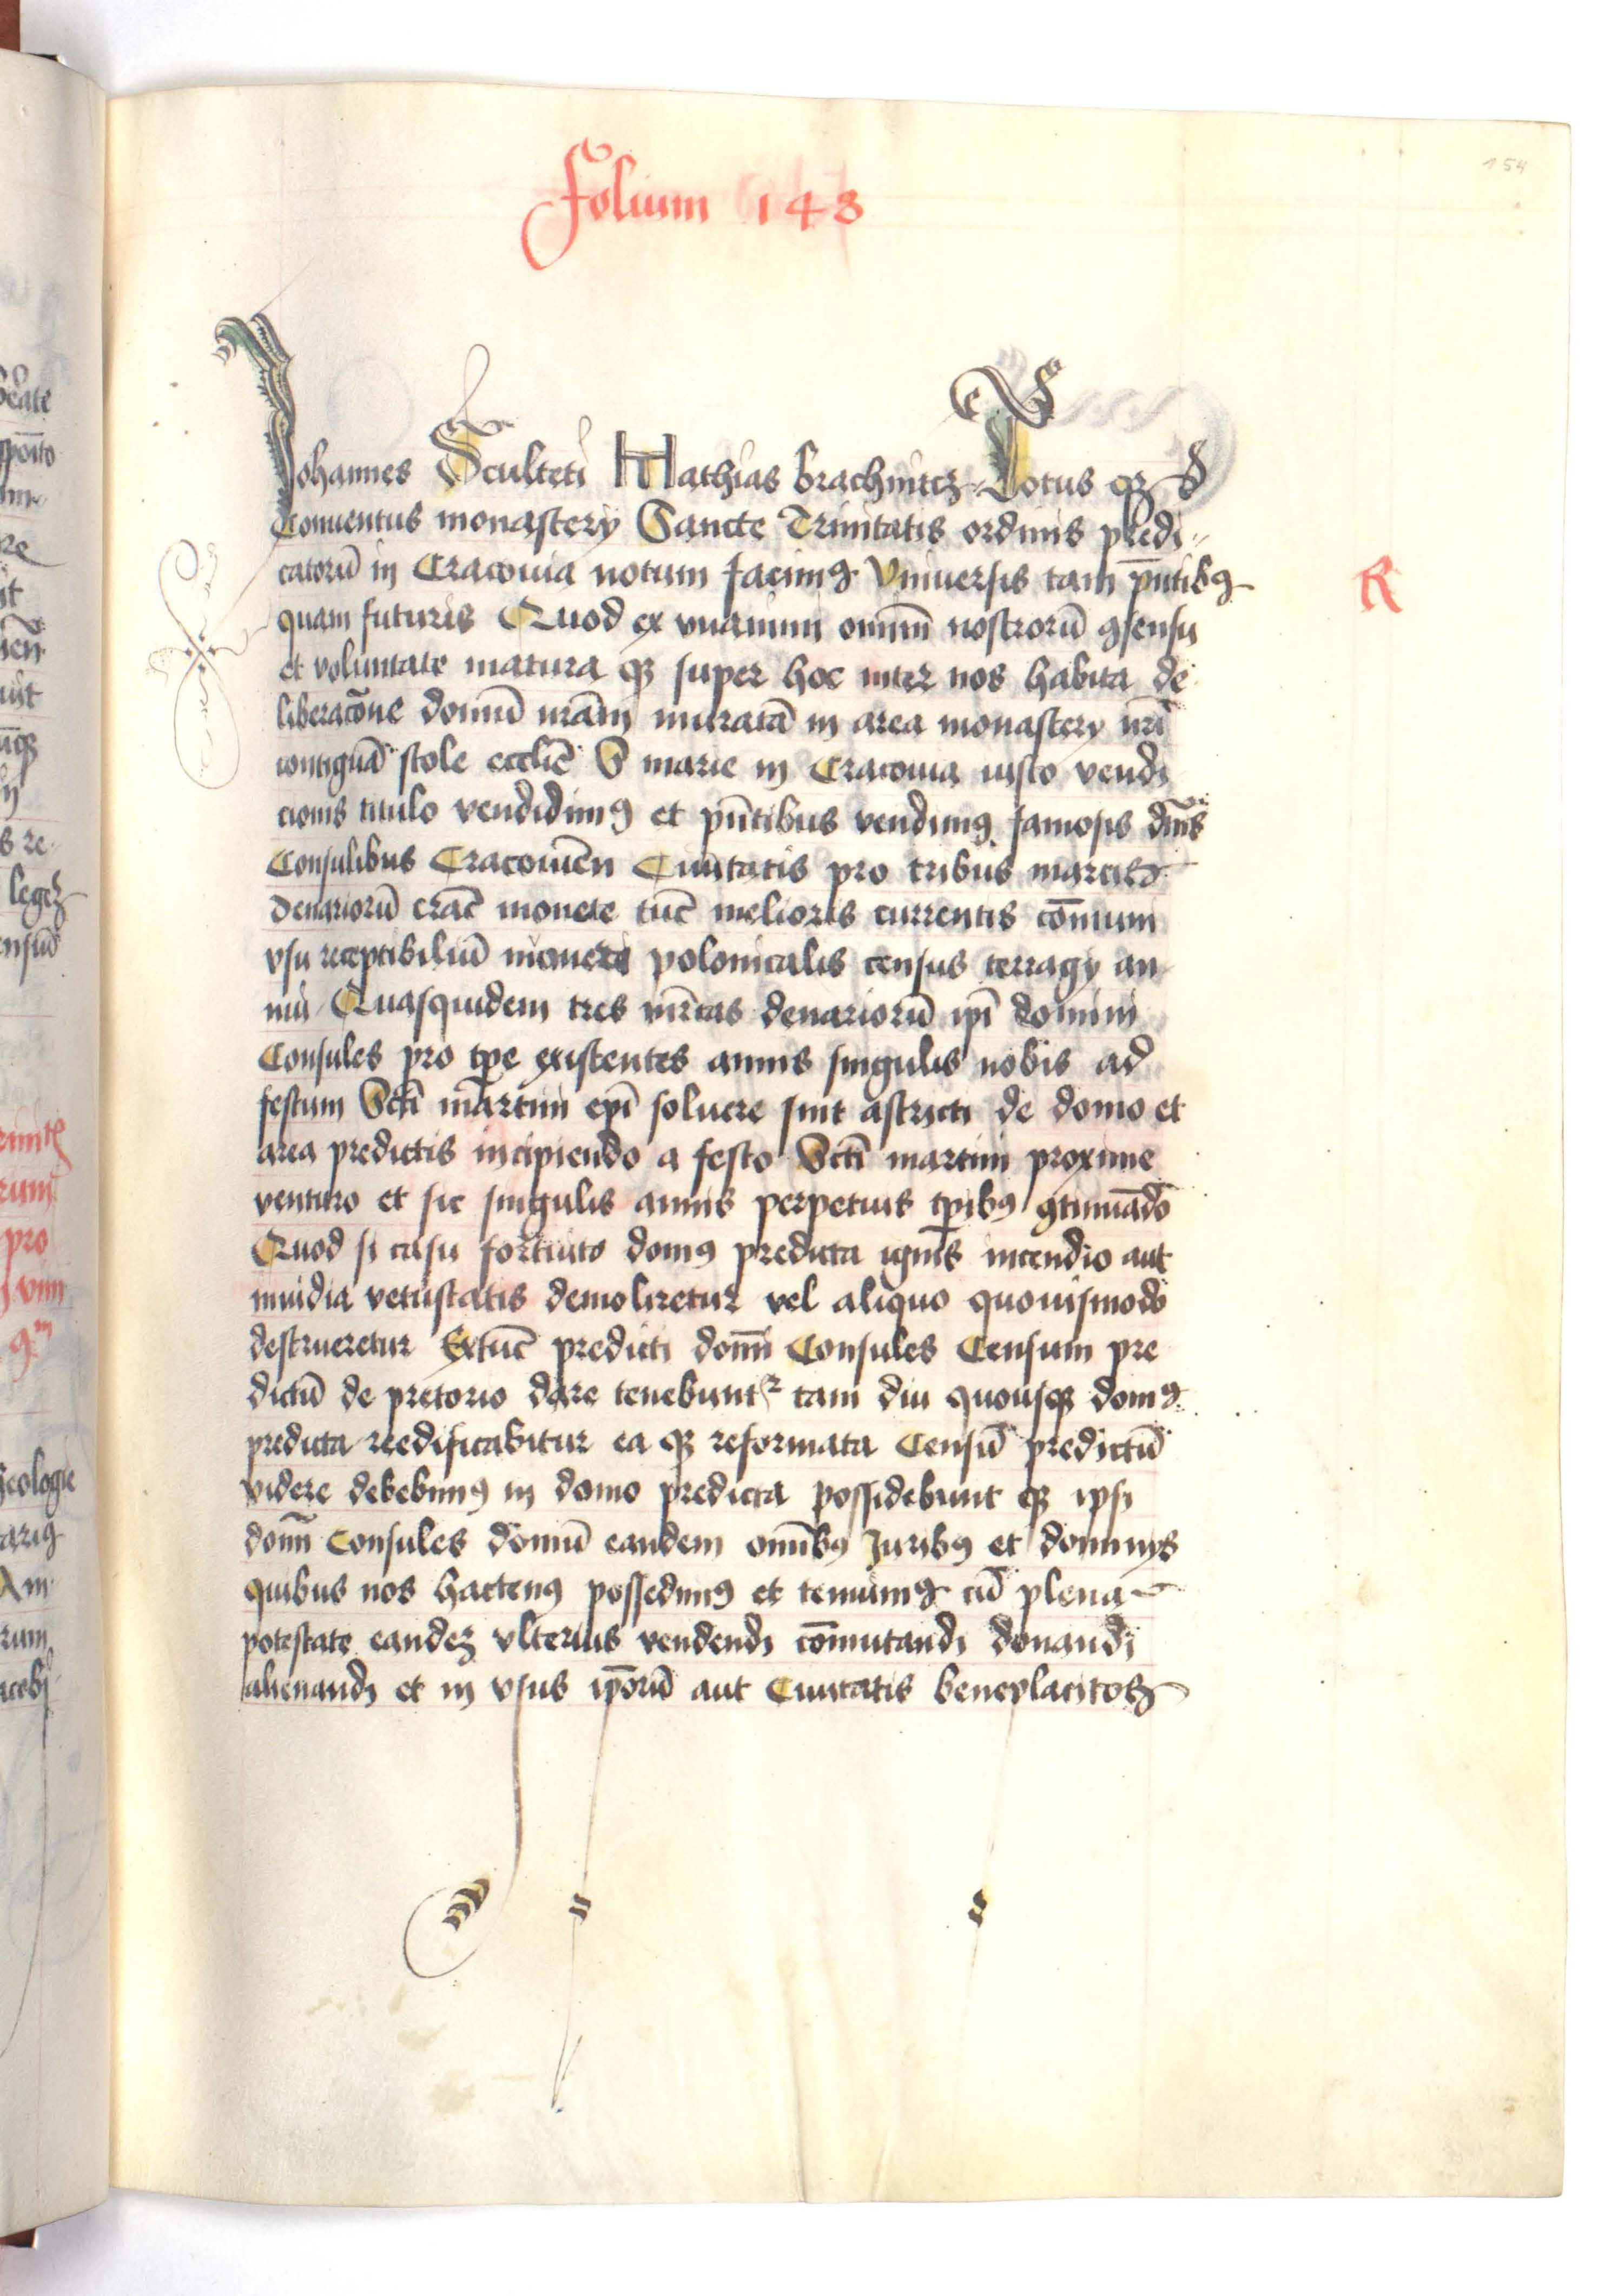 Folium 143
154
Johannes Sculteti Mathias brachnitcz Totus qꝫ
Conuentus monastery Sancte Trinitatis ordinis predi⸗
catorū in Cracouia notum facimꝯ Vniuersis tam pn̄tibꝯ
R
quam futuris Quod ex vnanimi omniū nostrorū ꝯsensu
et voluntate matura qꝫ super hoc inter nos habita de
liberacōne domū nrām muratā in area monastery nrī
contiguā scole ecclīe S marie in Cracouia iusto vendi
cionis titulo vendidimꝯ et pn̄tibus vendimꝯ famosis dnīs
Consulibus Cracouiēn Ciuitatis pro tribus marcis
denariorū crāc monete tūc melioris currentis cōmum
vsu receptibiliū monete polonicalis census terragy an
nui Quasquidem tres mr̄cas denariorū ipī domini
Consules pro tpe existentes annis singulis nobis ad
festum Sctī mārtini epī soluere sint astricti de domo et
area predictis incipiendo a festo Sctī martini proxime
venturo et sic singulis annis perpetuis tpibꝯ ꝯtinuādo
Quod si casu fortuito domꝯ predicta ignis incendio aut
inuidia vetustatis demoliretur vel aliquo quouismodo
destrueretur Extūc predicti domī Consules Censum pre
dictū de pretorio dare tenebuntr tam diu quousqꝫ domꝯ
predicta reedificabitur ea qꝫ reformata Censū predictū
videre debebimꝯ in domo predicta possidebunt qꝫ ipsi
domī Consules domū eandem omībꝯ Juribꝯ et dominys
quibus nos hactenꝯ possedimꝯ et tenuimꝯ cū plena
potestate eandeꝫ vlterius vendendi cōmutandi donandi
alienandi et in vsus ipōrū aut Ciuitatis beneplacitos